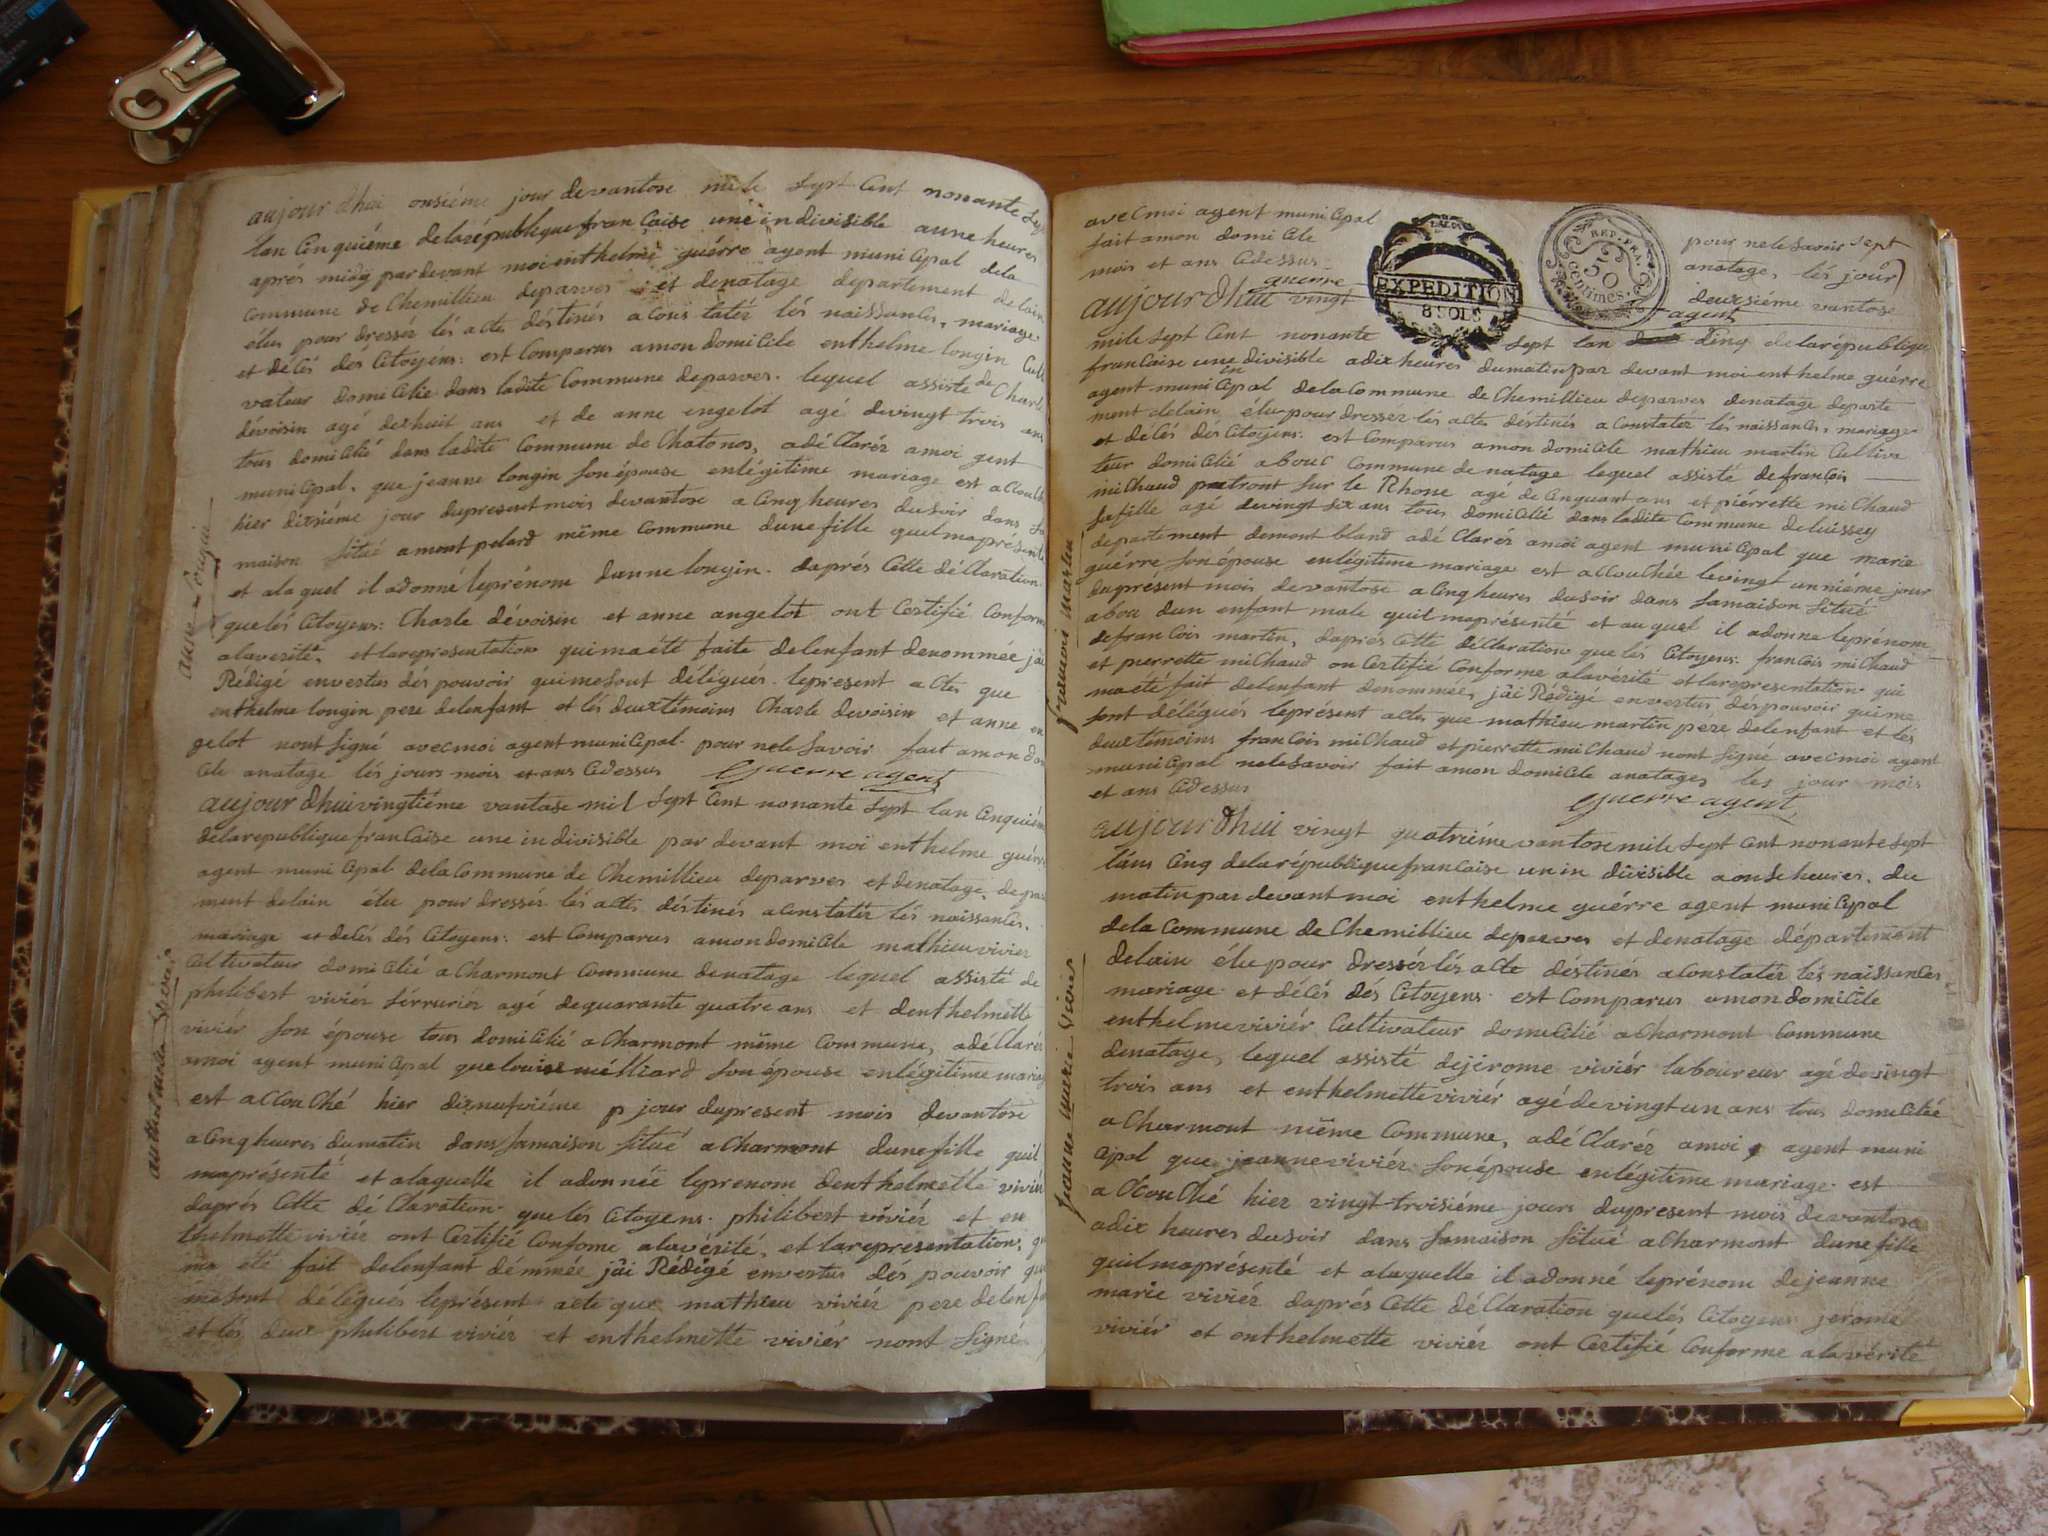 aujour dhui onsiéme jour devantose mile sept Cent nonante sept
lan Cinquiéme delarépubliquefrancaise une indivisible aune heures
aprés midy pardevant moi enthelme guérre agent municipal dela
commune de Chemillieu deparves et denatage departement delain
élus pour dressér lés acte déstinés aconstatér lés naissances, mariage
et décés des Citoyens: est Comparus amon domicile enthelme longin Culti
vateur domicilie dans ladite Commune deparves. lequel assisté de Charle
dévoisin agé dexhuit ans et de anne engelot agé devingt trois ans
tous domicilié dans ladite Commune de Chatonos, adéClarér amoi gent
municipal, que jeanne longin son épouse enlégitime mariage est accouché
hier dixiéme jour dupresent mois devantose a Cinq heures dusoir dans sa
maison situé amont pelard même Commune dune fille quelmaprésente
et ala quel il adonné leprénom danne longin. daprés Cette déClaration
quelés Citoyens: Charle dévoisin et anne angelot ont Certifié Conforme
alaverité, et larepresentation quimaété faite delenfant denommée jäi
Rédigé envertus dés pouvoir quimesont délégués. lepresent actes que
enthelme longin pere delenfant et lés deux témoins Charle devoisin et anne en
gelot nont signé avecmoi agent municipal. pour nele savoir fait amon domi
cile anatage lés jours mois et ans Cidessus guerre agent
anne Longin
aujour dhui vingtiéme vantase mil sept Cent nonante sept lan Cinquiéme
delarepubliquefrancaise une indivisible par devant moi enthelme guérre
agent municipal delacommune de Chemillieu deparves et denatage, depar
ment delain élu pour dressér lés acte, déstinés aconstatér lés naissances,
mariage et décés dés Citoyens: est Comparus amon domicile mathieu vivier
Cultivateur domicilié aCharmont Commune denatage lequel assisté de
philibert viviér sérruriér agé dequarante quatre ans et denthelmette
viviér son épouse tous domicilié aCharmont même Commune, adéClarér
amoi agent municipal quelouise milliard son épouse enlégitime mariage
est accouché hier dixneufviéme p jour dupresent mois devantose
aCinq heures dumatin dans samaison situé aCharmont dunefille quil
maprésenté et alaquelle il adonnée leprenom denthelmette viviér
daprés Cette déClaration quelés Citoyens. philibert viviér et en
thelmette viviér ont Certifié Confome alavérité, et larepresentation, qui
ma été fait delenfant démmée jäi Rédigé envertus dés pouvoir qui
mesont délégués leprésent acte que mathieu viviér pere delenfan
et lés deux philibert viviér et enthelmette viviér nont signé
anthelmette Vivier
avecmoi agent municipal pour nelesavoir sept
fait amon domicile anatage, lés jour
mois et ans Cidessus
guerre agent
EXPEDITION
8 SOLS
REP. FRA.
50
Centimes.
aujour dhui vingt deuxsiéme vantose
mile sept Cent nonante sept lan Cinq delarépublique
francaise une divisible adix heures dumatin par devant moi enthelme guérre
agent municipal delacommune de Chemillieu deparves denatage departe
ment delain, élu pour dressez lés acte, déstinés aconstatér lés naissances, mariage
et décés dés Citoyens. est Comparus amon domicile mathieu martin Cultiva
teur domicilié abouc Commune denatage lequel assisté defrancois
miChaud patront sur le Rhone agé de Cinquant ans et piérrette miChaud
safille agé devingt six ans tous domicilié dans ladite Commune delucssey
departement demont bland adé Clarer amoi agent municipal que marie
guérre son épouse enlégitime mariage est accouchée levingt unniéme jour
duprésent mois devantose aCinq heures dusoir dans samaison situé
abou dun enfant male quilmaprésenté et au quel il adonne leprénom
defrancois martin, daprés Cette déClaration quelés Citoyens. francois miChaud
et pierrette miChaud on Certifié Conforme alavérité et larepresentation qui
maeté fait delenfant denommée, jäi Rédigé envertus dés pouvoir quime
sont délégués leprésent acte, que mathieu martin pére delenfant et lés
deux témoins francois miChaud et pierrette miChaud nont signé avecmoi agent
municipal nelesavoir fait amon domicile anatage, les jour mois
et ans Cidessus guerre agent
francois martin
aujour dhui vingt quatriéme vantose mile sept Cent nonante sept
lans Cinq delarépubliquefrancaise unin divisible aonse heures. du
matin par devant moi enthelme guérre agent municipal
dela Commune de Chemillieu deparves et denatage département
delain élu pour dressér lés acte déstinés aconstatér lés naissances,
mariage et décés dés Citoyens. est Comparus amon domicile
enthelme viviér Cultivateur domicilié aCharmont Commune
denatage, lequel assisté dejérome viviér laboureur agé devingt
trois ans et enthelmette viviér agé devingt un ans tous domicilié
aCharmont même Commune, adéClarér amoi agent muni
cipal que jeanne viviér son épouse enlégitime mariage est
accouché hier vingt troisiéme jours dupresent mois devantose
adix heures dusoir dans samaison situé aCharmont dune fille
quilmaprésenté et alaquelle il adonné leprénom dejeanne
marie viviér daprés Cette déClaration quelés Citoyens jerome
viviér et enthelmette viviér ont Certifié Conforme alavérité
jeanne marie Vivier